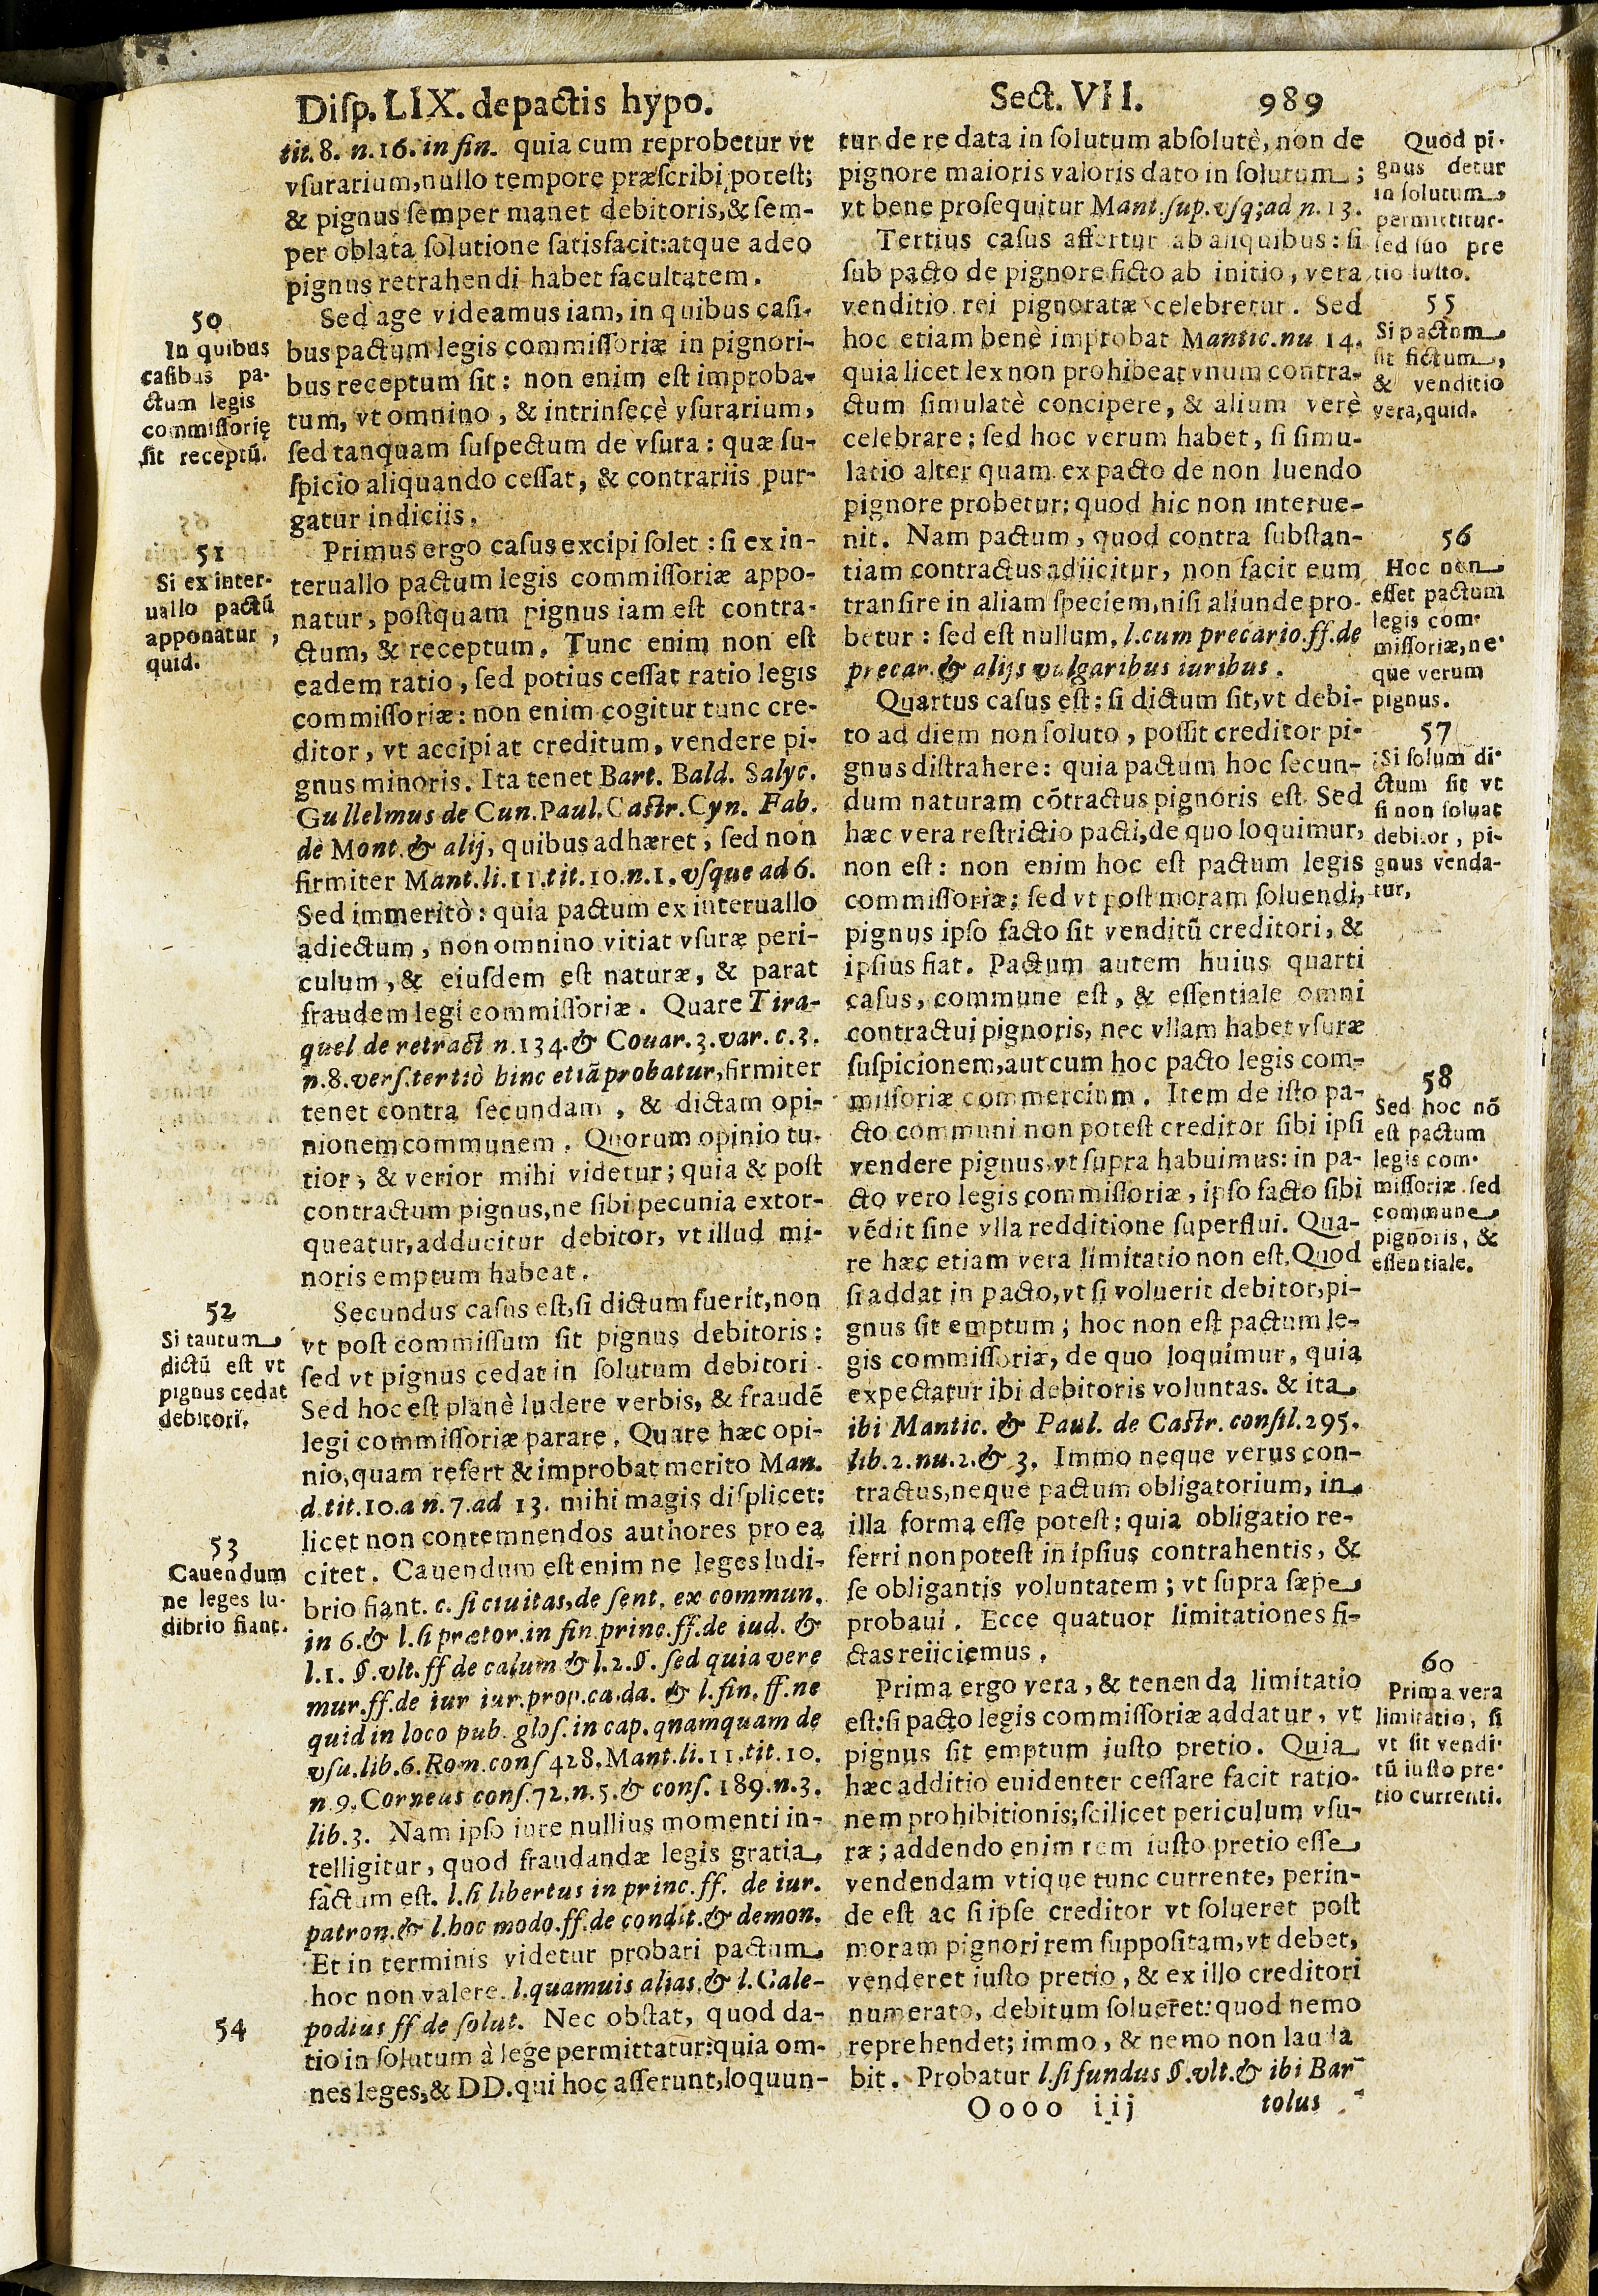 Disp. LIX. de pactis hypo.
Sect. VII. 989
tit. 8. n. 16. in fin. quia cum reprobetur vt
vsurarium, nullo tempore præscribi potest;
& pignus semper manet debitoris, & sem-
per oblata solutione satisfacit: atque adeo
pignus retrahendi habet facultatem.
50
In quibus
casibus pa-
ctum legis
commissorię
sit receptũ.
Sed age videamus iam, in quibus casi-
bus pactum legis commissoriæ in pignori-
bus receptum sit: non enim est improba-
tum, vt omnino, & intrinsecè vsurarium,
sed tanquam suspectum de vsura: quæ su-
spicio aliquando cessat, & contrariis pur-
gatur indiciis.
51
Si ex inter-
uallo pactũ
apponatur,
quid.
Primus ergo casus excipi solet: si ex in-
teruallo pactum legis commissoriæ appo-
natur, postquam pignus iam est contra-
ctum, & receptum. Tunc enim non est
eadem ratio, sed potius cessat ratio legis
commissoriæ: non enim cogitur tunc cre-
ditor, vt accipiat creditum, vendere pi-
gnus minoris. Ita tenet Bart. Bald. Salyc.
Gullelmus de Cun. Paul. Castr. Cyn. Fab.
de Mont. & alij, quibus adhæret, sed non
firmiter Mant. li. 11. tit. 10. n. 1. vsque ad 6.
Sed immeritò: quia pactum ex interuallo
adiectum, non omnino vitiat vsuræ peri-
culum, & eiusdem est naturæ, & parat
fraudem legi commissoriæ. Quare Tira-
quel de retract n. 134. & Couar. 3. var. c. 3.
n. 8. vers. tertiò hinc etiã probatur, firmiter
tenet contra secundam, & dictam opi-
nionem communem. Quorum opinio tu-
tior, & verior mihi videtur; quia & post
contractum pignus, ne sibi pecunia extor-
queatur, adducitur debitor, vt illud mi-
noris emptum habeat.
52
Si tautum
dictũ est vt
pignus cedat
debitori.
Secundus casus est, si dictum fuerit, non
vt post commissum sit pignus debitoris:
sed vt pignus cedat in solutum debitori.
Sed hoc est planè ludere verbis, & fraudẽ
legi commissoriæ parare. Quare hæc opi-
nio, quam refert & improbat merito Man.
d. tit. 10. a n. 7. ad 13. mihi magis displicet:
licet non contemnendos authores pro ea
53
Cauendum
ne leges lu-
dibrio fiant.
citet. Cauendum est enim ne leges ludi-
brio fiant. c. si ciuitas, de sent. ex commun.
in 6. & l. si prætor. in fin. princ. ff. de iud. &
l. 1. §. vlt. ff de calum & l. 2. §. sed quia vere
mur. ff. de iur iur. prop. ca. da. & l. fin. ff. ne
quid in loco pub. glos. in cap. qnamquam de
vsu. lib. 6. Rom. cons 428. Mant. li. 11. tit. 10.
n 9. Corneus cons. 72. n. 5. & cons. 189. n. 3.
lib. 3. Nam ipso iure nullius momenti in-
telligitur, quod fraudandæ legis gratia
factum est. l. si libertus in princ. ff. de iur.
patron. & l. hoc modo. ff. de condit. & demon.
Et in terminis videtur probari pactum
hoc non valere. l. quamuis alias. & l. Cale-
54
podius ff de solut. Nec obstat, quod da-
tio in solutum à lege permittatur: quia om-
nes leges, & DD. qui hoc asserunt, loquun-
tur de re data in solutum absolutè, non de
pignore maioris valoris dato in solutum;
vt bene prosequitur Mant. sup. vsq; ad n. 13.
Quod pi-
gnus detur
in solutum,
permittitur-
sed suo pre
tio iusto.
Tertius casus affertur ab aliquibus: si
sub pacto de pignore ficto ab initio, vera
venditio rei pignoratæ celebretur. Sed
hoc etiam benè improbat Mantic. nu 14.
quia licet lex non prohibeat vnum contra-
ctum simulatè concipere, & alium verè
celebrare; sed hoc verum habet, si simu-
latio alter quam ex pacto de non luendo
pignore probetur; quod hic non interue-
nit. Nam pactum, quod contra substan-
tiam contractus adiicitur, non facit eum
transire in aliam speciem, nisi aliunde pro-
betur: sed est nullum. l. cum precario. ff. de
precar. & alijs vulgaribus iuribus.
55
Si pactum
sit fictum,
& venditio
vera, quid.
56
Hoc non
esset pactum
legis com-
missoriæ, ne-
que verum
pignus.
Quartus casus est: si dictum sit, vt debi-
to ad diem non soluto, possit creditor pi-
gnus distrahere: quia pactum hoc secun-
dum naturam cõtractus pignoris est. Sed
hæc vera restrictio pacti, de quo loquimur,
non est: non enim hoc est pactum legis
commissoriæ; sed vt post moram soluendi,
pignus ipso facto sit venditũ creditori, &
ipsius fiat. Pactum autem huius quarti
casus, commune est, & essentiale omni
contractui pignoris, nec vllam habet vsuræ
suspicionem, aut cum hoc pacto legis com-
missoriæ commercium. Item de isto pa-
cto communi non potest creditor sibi ipsi
vendere pignus, vt supra habuimus: in pa-
cto vero legis commissoriæ, ipso facto sibi
vẽdit sine vlla redditione superflui. Qua-
re hæc etiam vera limitatio non est. Quod
si addat in pacto, vt si voluerit debitor, pi-
gnus sit emptum; hoc non est pactum le-
gis commissoriæ, de quo loquimur, quia
expectatur ibi debitoris voluntas. & ita
ibi Mantic. & Paul. de Castr. consil. 295.
lib. 2. nu. 2. & 3. Immo neque verus con-
tractus, neque pactum obligatorium, in
illa forma esse potest; quia obligatio re-
ferri non potest in ipsius contrahentis, &
se obligantis voluntatem; vt supra sæpe
probaui. Ecce quatuor limitationes fi-
ctas reiiciemus.
57
Si solum di-
ctum sit vt
si non soluat
debitor, pi-
gnus venda-
tur.
58
Sed hoc nõ
est pactum
legis com-
missoriæ. sed
commune
pignoris, &
essentiale.
Prima ergo vera, & tenenda limitatio
est: si pacto legis commissoriæ addatur, vt
pignus sit emptum iusto pretio. Quia
hæc additio euidenter cessare facit ratio-
nem prohibitionis; scilicet periculum vsu-
ræ; addendo enim rem iusto pretio esse
vendendam vtique tunc currente, perin-
de est ac si ipse creditor vt solueret post
moram pignori rem suppositam, vt debet,
venderet iusto pretio, & ex illo creditori
numerato, debitum solueret: quod nemo
reprehendet; immo, & nemo non lauda
bit. Probatur l. si fundus §. vlt. & ibi Bar-
60
Prima vera
limitatio, si
vt sit vendi-
tũ iusto pre-
tio currenti.
Oooo iij tolus